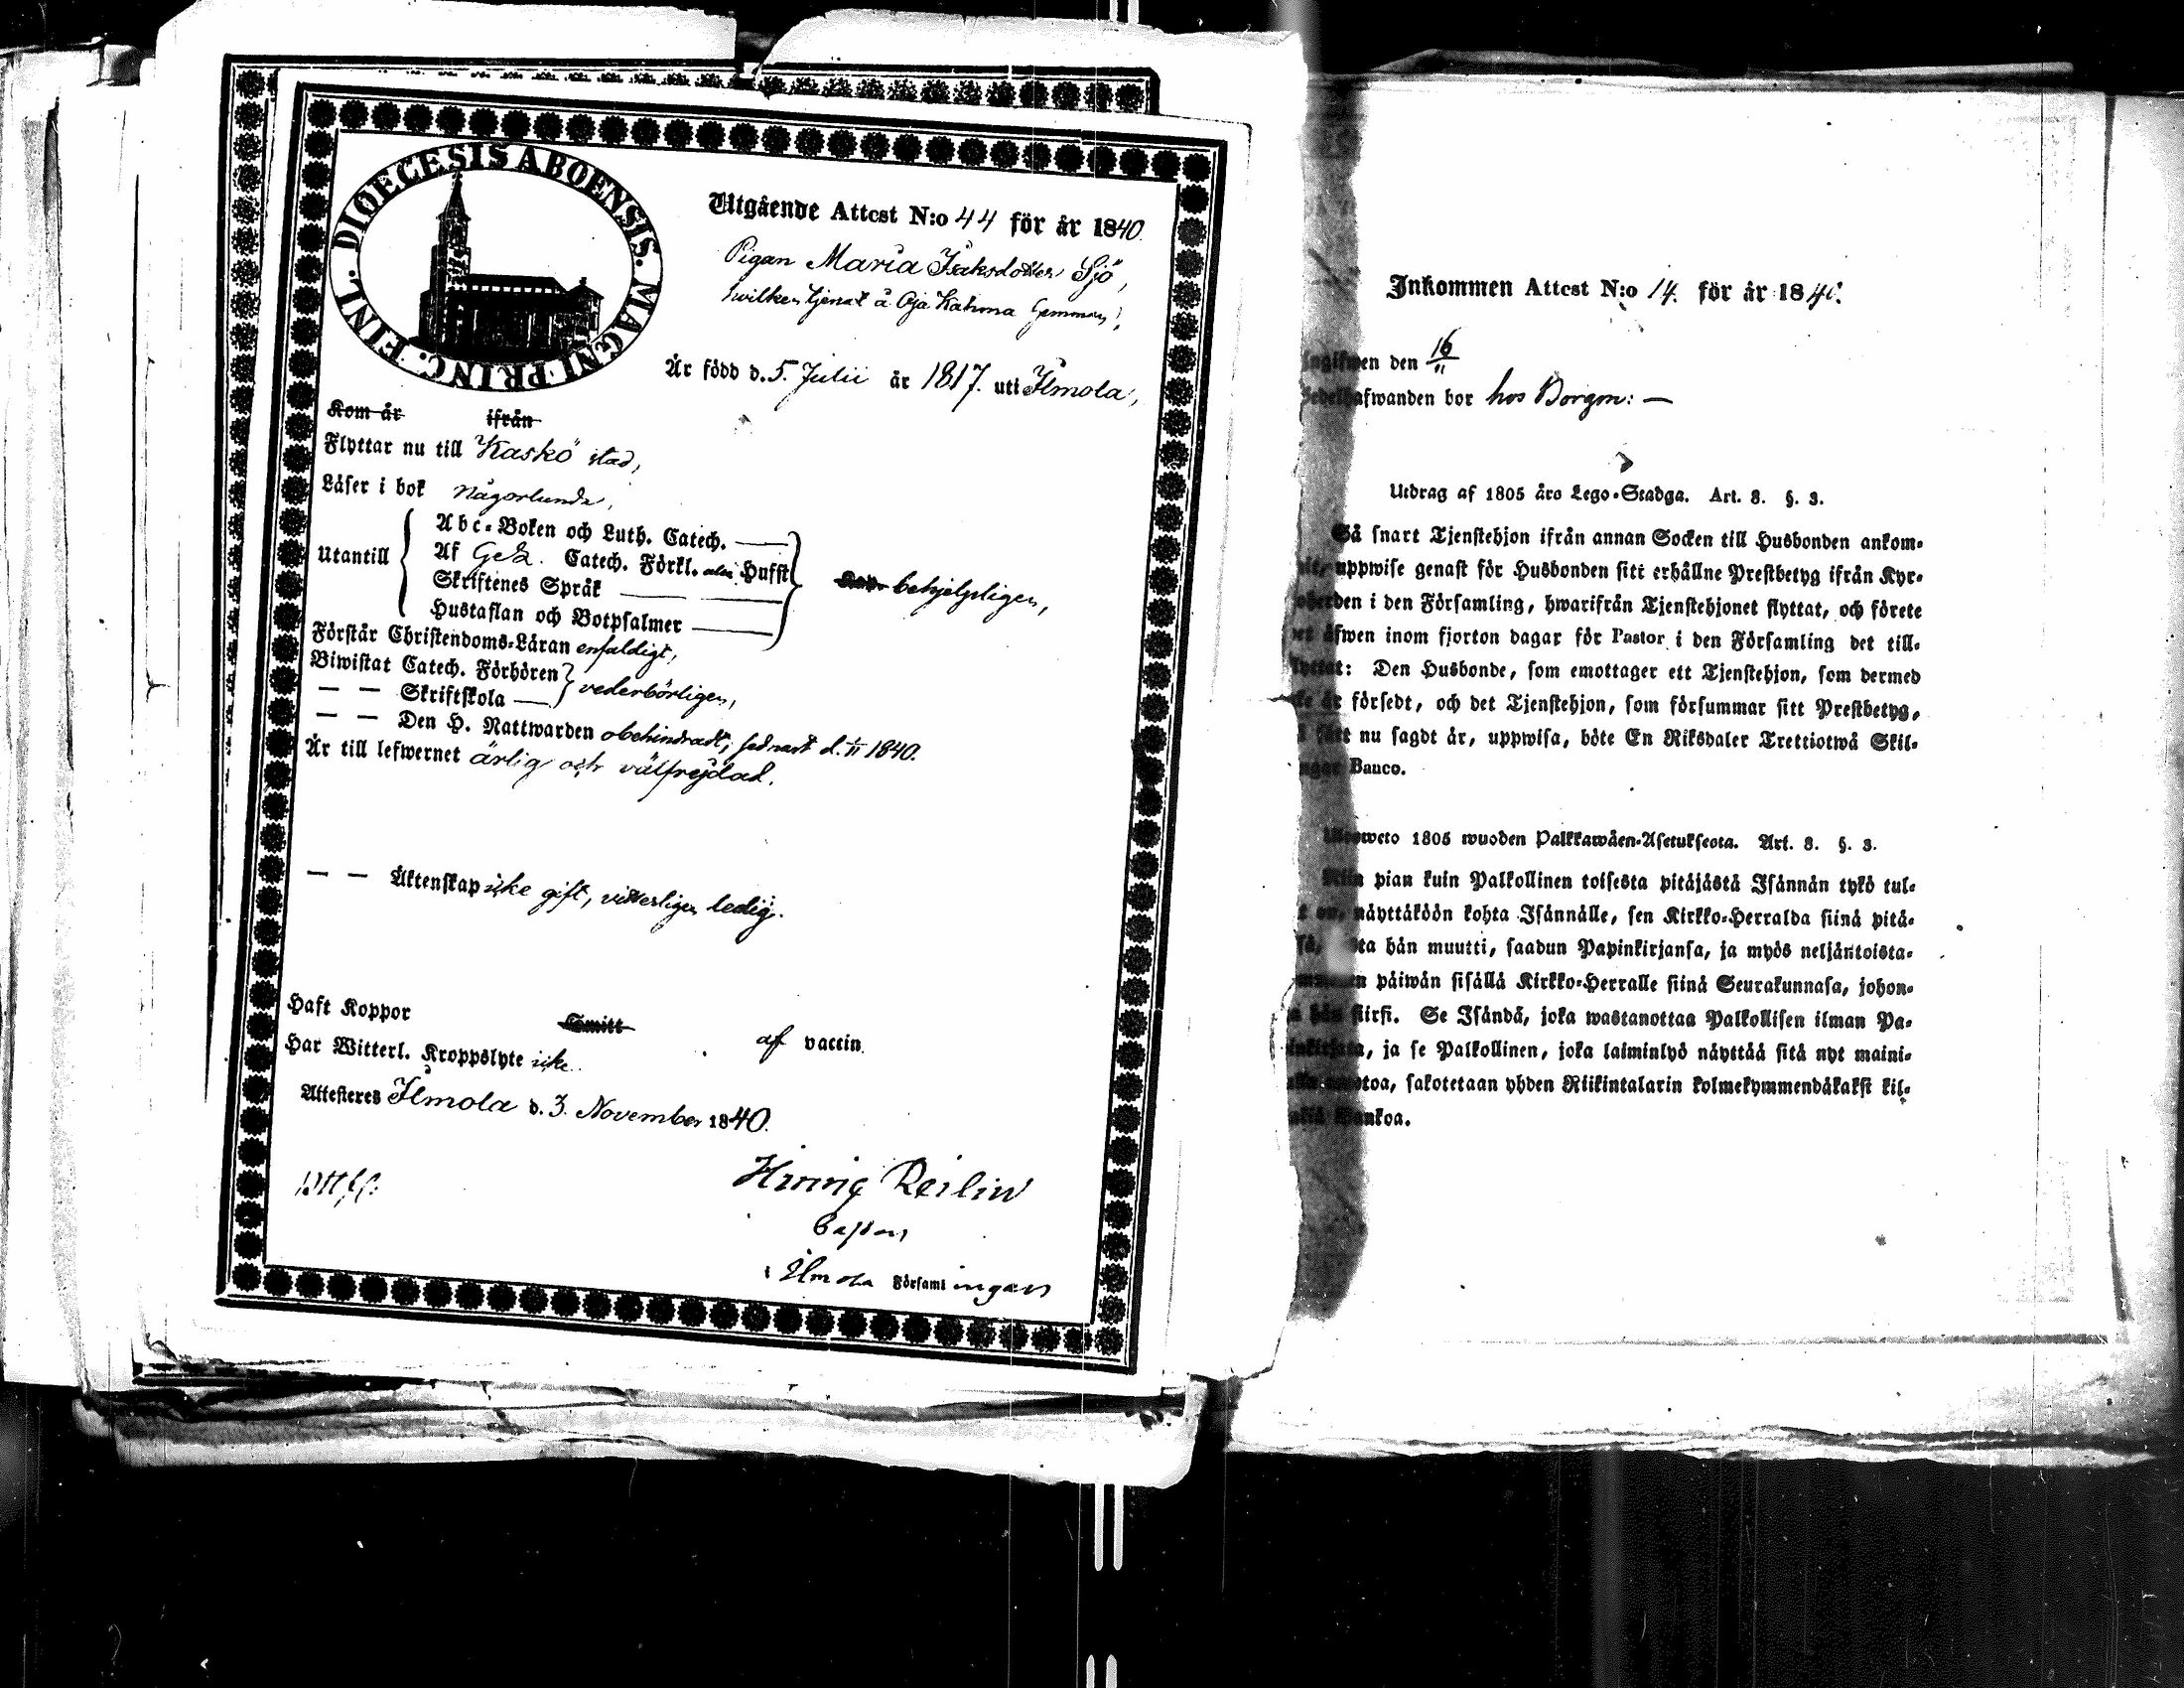 DIOECESIS ABOENSIS. MAGNI PRINC. FINL.
Utgående Attest N:o 44 för år 1840.
Pigan Maria Isaksdotter Sjö,
hvilken tjenat å Oja Kahma hemman,
Är född d. 5. Julii år 1817. uti Ilmola,
Kom år ifrån
Flyttar nu till Kaskö stad,
Läser i bok någorlunda,
Utantill
Abc-Boken och Luth. Catech.
Af Catech. Förkl. Hufst
Skriftenes Språk
Hustaflan och Botpsalmer
behjelpligen,
Förstår Christendoms-Läran enfaldigt,
Biwistat Catech. Förhören
— — Skriftskola — vederbörligen,
— — Den H. Nattwarden obehindradt, sednast d. 1/11 1840.
Är till lefwernet ärlig och välfrejdad.
— — Äktenskap icke gift, vitterligen ledig.
Haft Koppor Smitt af vaccin
Har Witterl. Kroppslyte icke.
Attesteras Ilmola d. 3. November 1840.
Reilin
i Ilmola Församlingen
Inkommen Attest N:o 14. för år 1840.
den 16/11
bor hos Borgm: —
Utdrag af 1805 års Lego-Stadga. Art. 8. §. 3.
Så snart Tjenstehjon ifrån annan Socken till Husbonden ankom-
uppwise genast för Husbonden sitt erhållne Prestbetyg ifrån Kyr-
i den Församling, hwarifrån Tjenstehjonet flyttat, och förete
äfwen inom fjorton dagar för Pastor i den Församling det till-
Den Husbonde, som emottager ett Tjenstehjon, som dermed
försedt, och det Tjenstehjon, som försummar sitt Prestbetyg,
nu sagdt är, uppwisa, böte En Riksdaler Trettiotwå Skil-
Banco.
1805 wuoden Palkkawäen-Asetuksesta. Art. 8. §. 3.
pian kuin Palkollinen toisesta pitäjästä Isännän tykö tul-
näyttäköön kohta Isännälle, sen Kirkko-Herralda siinä pitä-
hän muutti, saadun Papinkirjansa, ja myös neljäntoista-
päiwän sisällä Kirkko-Herralle siinä Seurakunnasa, johon-
siirsi. Se Isändä, joka wastanottaa Palkollisen ilman Pa-
ja se Palkollinen, joka laiminlyö näyttää sitä nyt maini-
sakotetaan yhden Riikintalarin kolmekymmendäkaksi kil-
Bankoa.